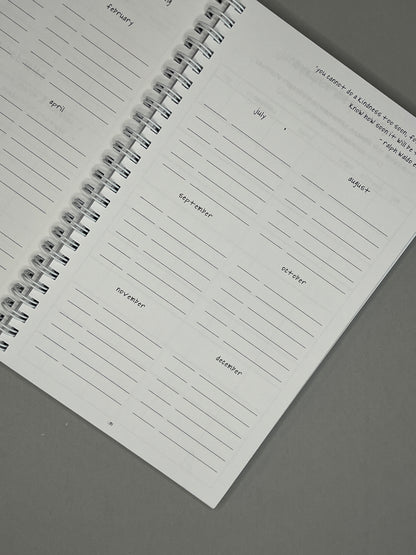 february
april
"you cannot do a kindness too soon, f
know how soon it will be
- ralph waldo
july
august
september
october
november
december